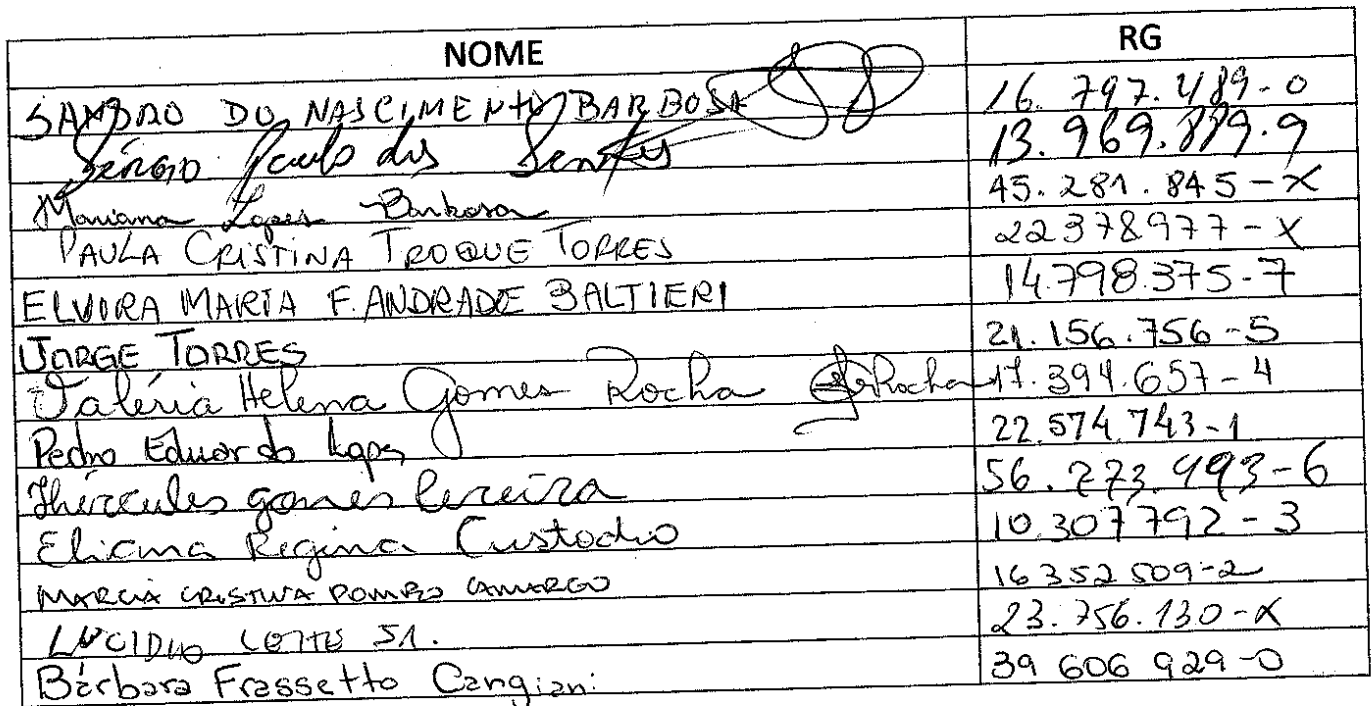 NOME RG
SANDRO DO NASCIMENTO BARBOSA 16.797.489-0
Sérgio Paulo dos Santos 13.969.889.9
Mariana Lopes Barbosa 45.281.845-X
PAULA CRISTINA TROQUE TORRES 22378977-X
ELVIRA MARIA F. ANDRADE BALTIERI 14.798.375-7
JORGE TORRES 21.156.756-5
Valéria Helena Gomes Rocha Rocha 17.394.657-4
Pedro Eduardo Lopes 22.574.743-1
Thércules gomes Pereira 56.273.493-6
Eliana Regina Custodio 10.307792-3
MARCIA CRISTINA POMPEO CAMARGO 16352509-2
LEITE 23.756.130-X
Bárbara Frassetto Cangiani 39 606 929-0